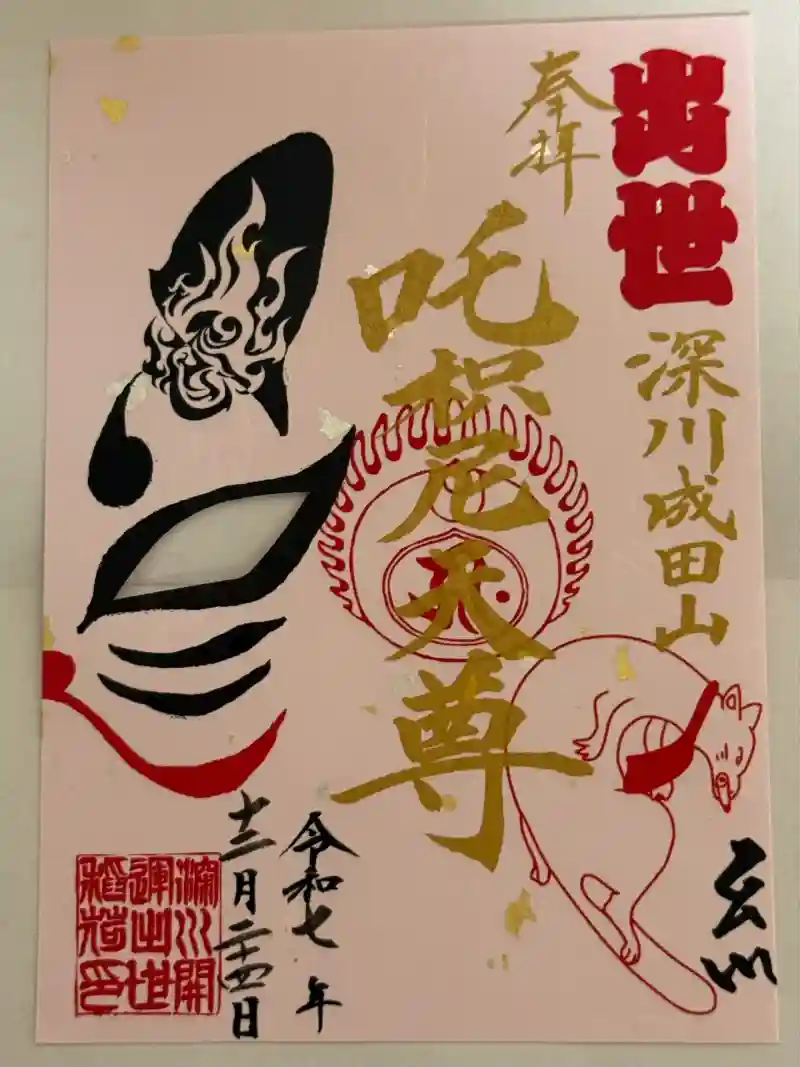 出世
深川成田山
奉拝
吒枳尼天尊
令和七年
十二月二十四日
深川開
運出世
稲荷印